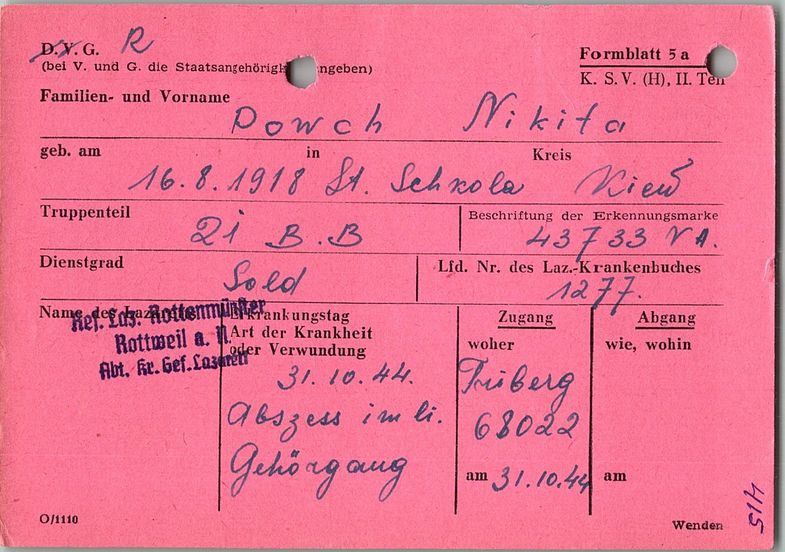 D. V. G. R
(bei V. und G. die Staatsangehörigk ngeben)
Formblatt 5 a
K. S. V. (H), II. Teil
Familien- und Vorname
Dowch Nikita
geb. am in Kreis
16.8.1918 St. Schkola Kiew
Truppenteil
Beschriftung der Erkennungsmarke
21 B. B
43733 V A.
Dienstgrad
Lfd. Nr. des Laz.-Krankenbuches
Sold
1277.
Name des Lazaretts
Res. Laz. Rottenmünster
Rottweil a. N.
Abt. Kr. Gef. Lazarett
Erkrankungstag
Art der Krankheit
oder Verwundung
31.10.44.
Abszess im li.
Gehörgang
Zugang
woher
Triberg
68022
am 31.10.44
Abgang
wie, wohin
am
O/1110
Wenden
415